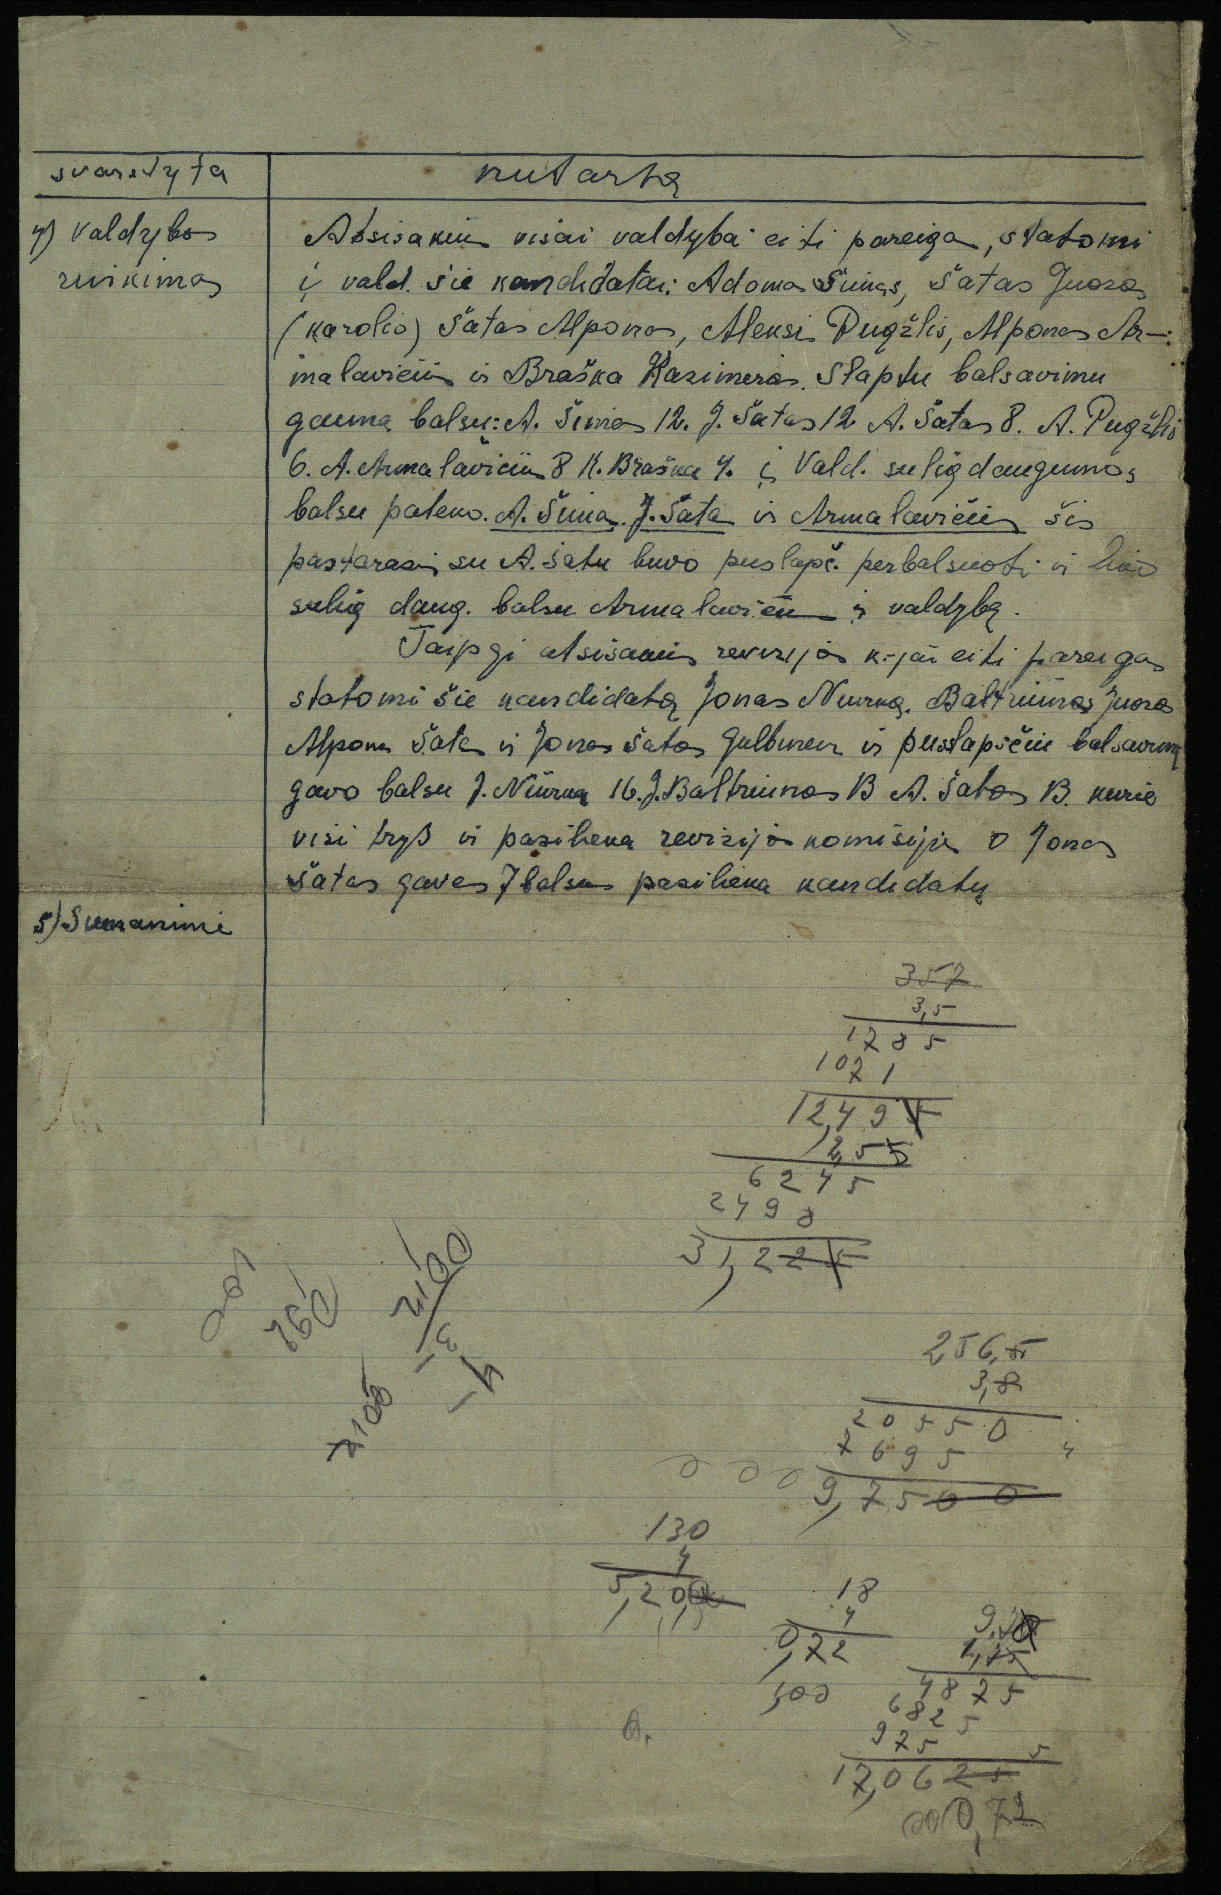 svarstyta
nutartą
4) Valdybos
rinkimas
Atsisakius visai valdybai eiti pareigas, statomi
į vald. šie kandidatai: Adomas Šimas, Šatas Juozas
(Karolio) Šatas Alponas, Aleksis Pugžlis, Alponas Ar-
malavičius ir Braška Kazimeras. Slaptu balsavimu
gauna balsu: A. Šimas 12. J. Šatas 12 A. Šatas 8. A. Pugžlis
6. A. Armalavičius 8 K. Braška 4. į Vald. sulig daugumos
balsu pateko. A. Šimas. J. Šata ir Armalavičius šis
pastarasis su A. Šatu buvo puslapč. perbalsuoti ir liko
sulig daug. balsu Armalavičiu į valdybą.
Taipgi atsisakius revizijos k-jai eiti pareigas
statomi šie kandidatą Jonas Niurka, Baltrimas Juozas
Alponas Šatas ir Jonas Šatas ir puslapščiu balsavimą
gavo balsu J. Niurka 16. J. Baltrimas 13 A. Šatas 13. kurie
visi trys ir pasilieka revizijos komisiję o Jonas
Šatas gavęs 7 balsus pasilieka kandidatų
5) Sumanimi
357
3,5
1785
1071
12,495
2,55
6245
2498
31,225
100
760
2100
3
4
2100
256,5
3,8
20550
7695
9,7500
130
4
5,200
18
4
0,72
,00
4875
6825
975 5
17,0625
0,72